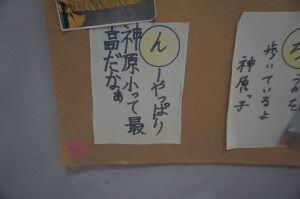 んーやっぱり
神原小って最
高だなぁ
歩いているよ
神原っ子